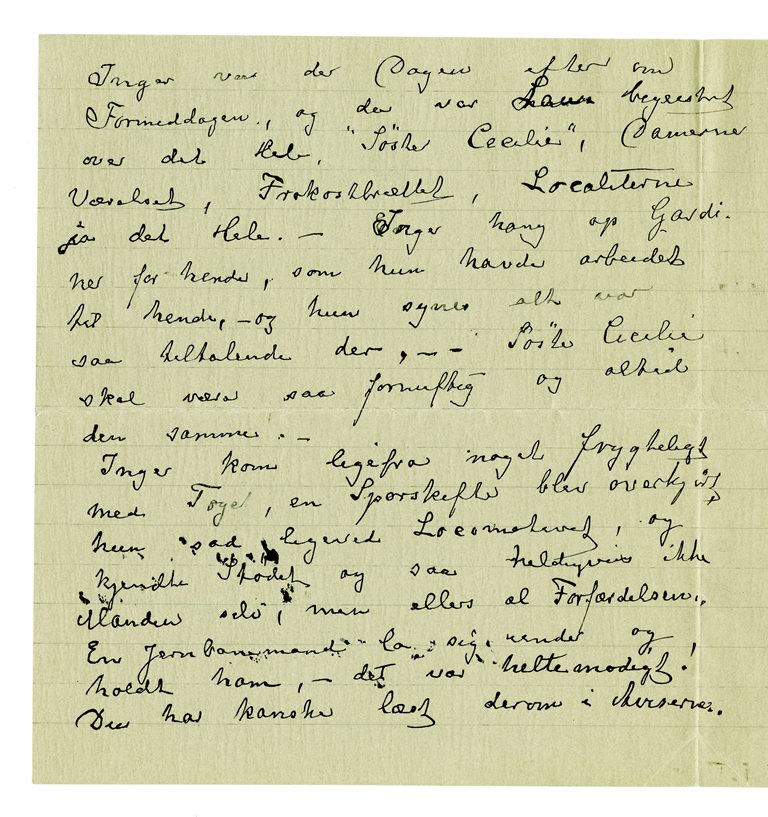 Inger var der Dagen efter om
Formiddagen., og der var begeistret
over det Hele, "Söster Cecilie", Damerne
Værelset, Frokostbrættet, Localiterne
ja det Hele. — Inger hang op Gardi-
ner for hende, som hun havde arbeidet
til hende, — og hun synes alt var
saa tiltalende der, — — Söster Cecilie
skal være saa fornuftig og altid
den samme. —
Inger kom ligefra noget frygteligt
med Toget, en Sporskifter blev overkjørt,
hun sad ligeved Locomotivet, og
kjendte Stödet og saa heldigvis ikke
Manden selv, men ellers al Forfærdelsen.
En Jernbanemand la sig under og
holdt ham, — det var heltemodigt!
Du har kanske læst derom i Aviserne.